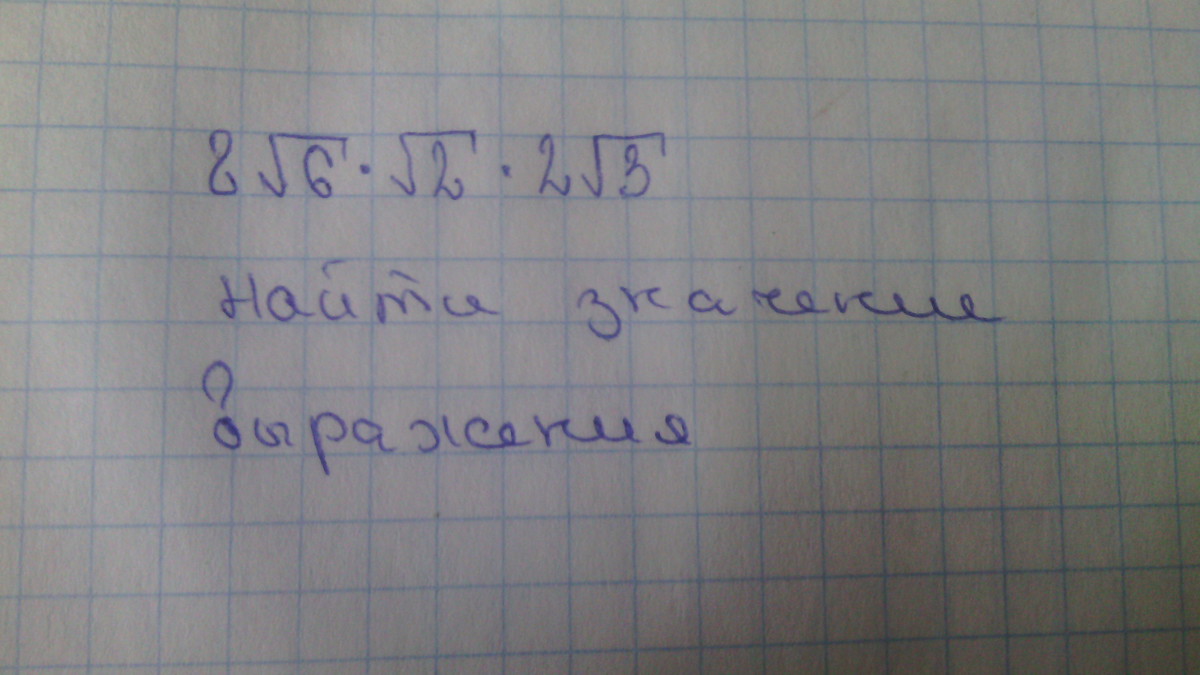 8√6·√2·2√3
найти значение
выражения